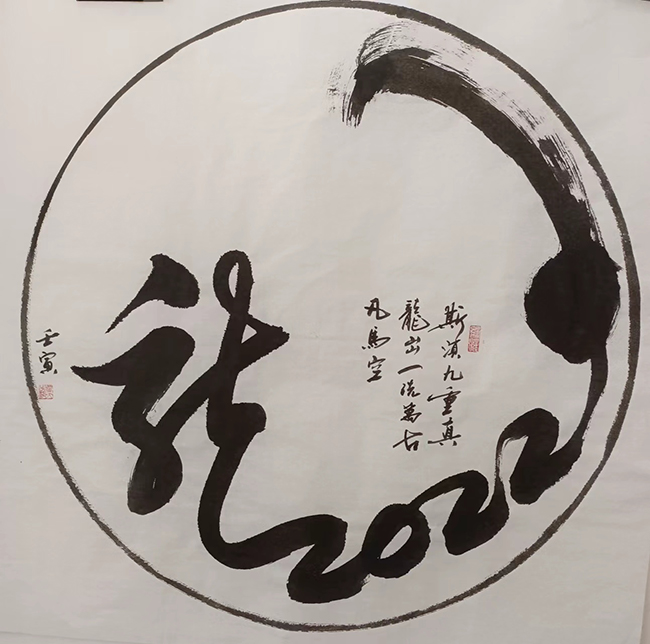 龍2022
斯須九重真
龍出一洗萬古
凡馬空
壬寅